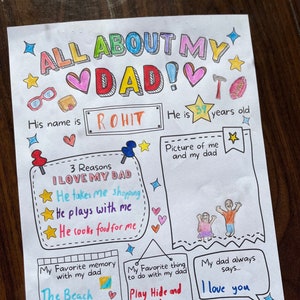 ALL ABOUT MY
DAD!
His name is ROHIT He is 39 years old
3 Reasons
I LOVE MY DAD
He takes me shopping
He plays with me
He cooks food for me
Picture of me
and my dad
My Favorite memory
with my dad
The Beach
My Favorite thing
to do with my dad
Play Hide and
My dad always
says...
I love you